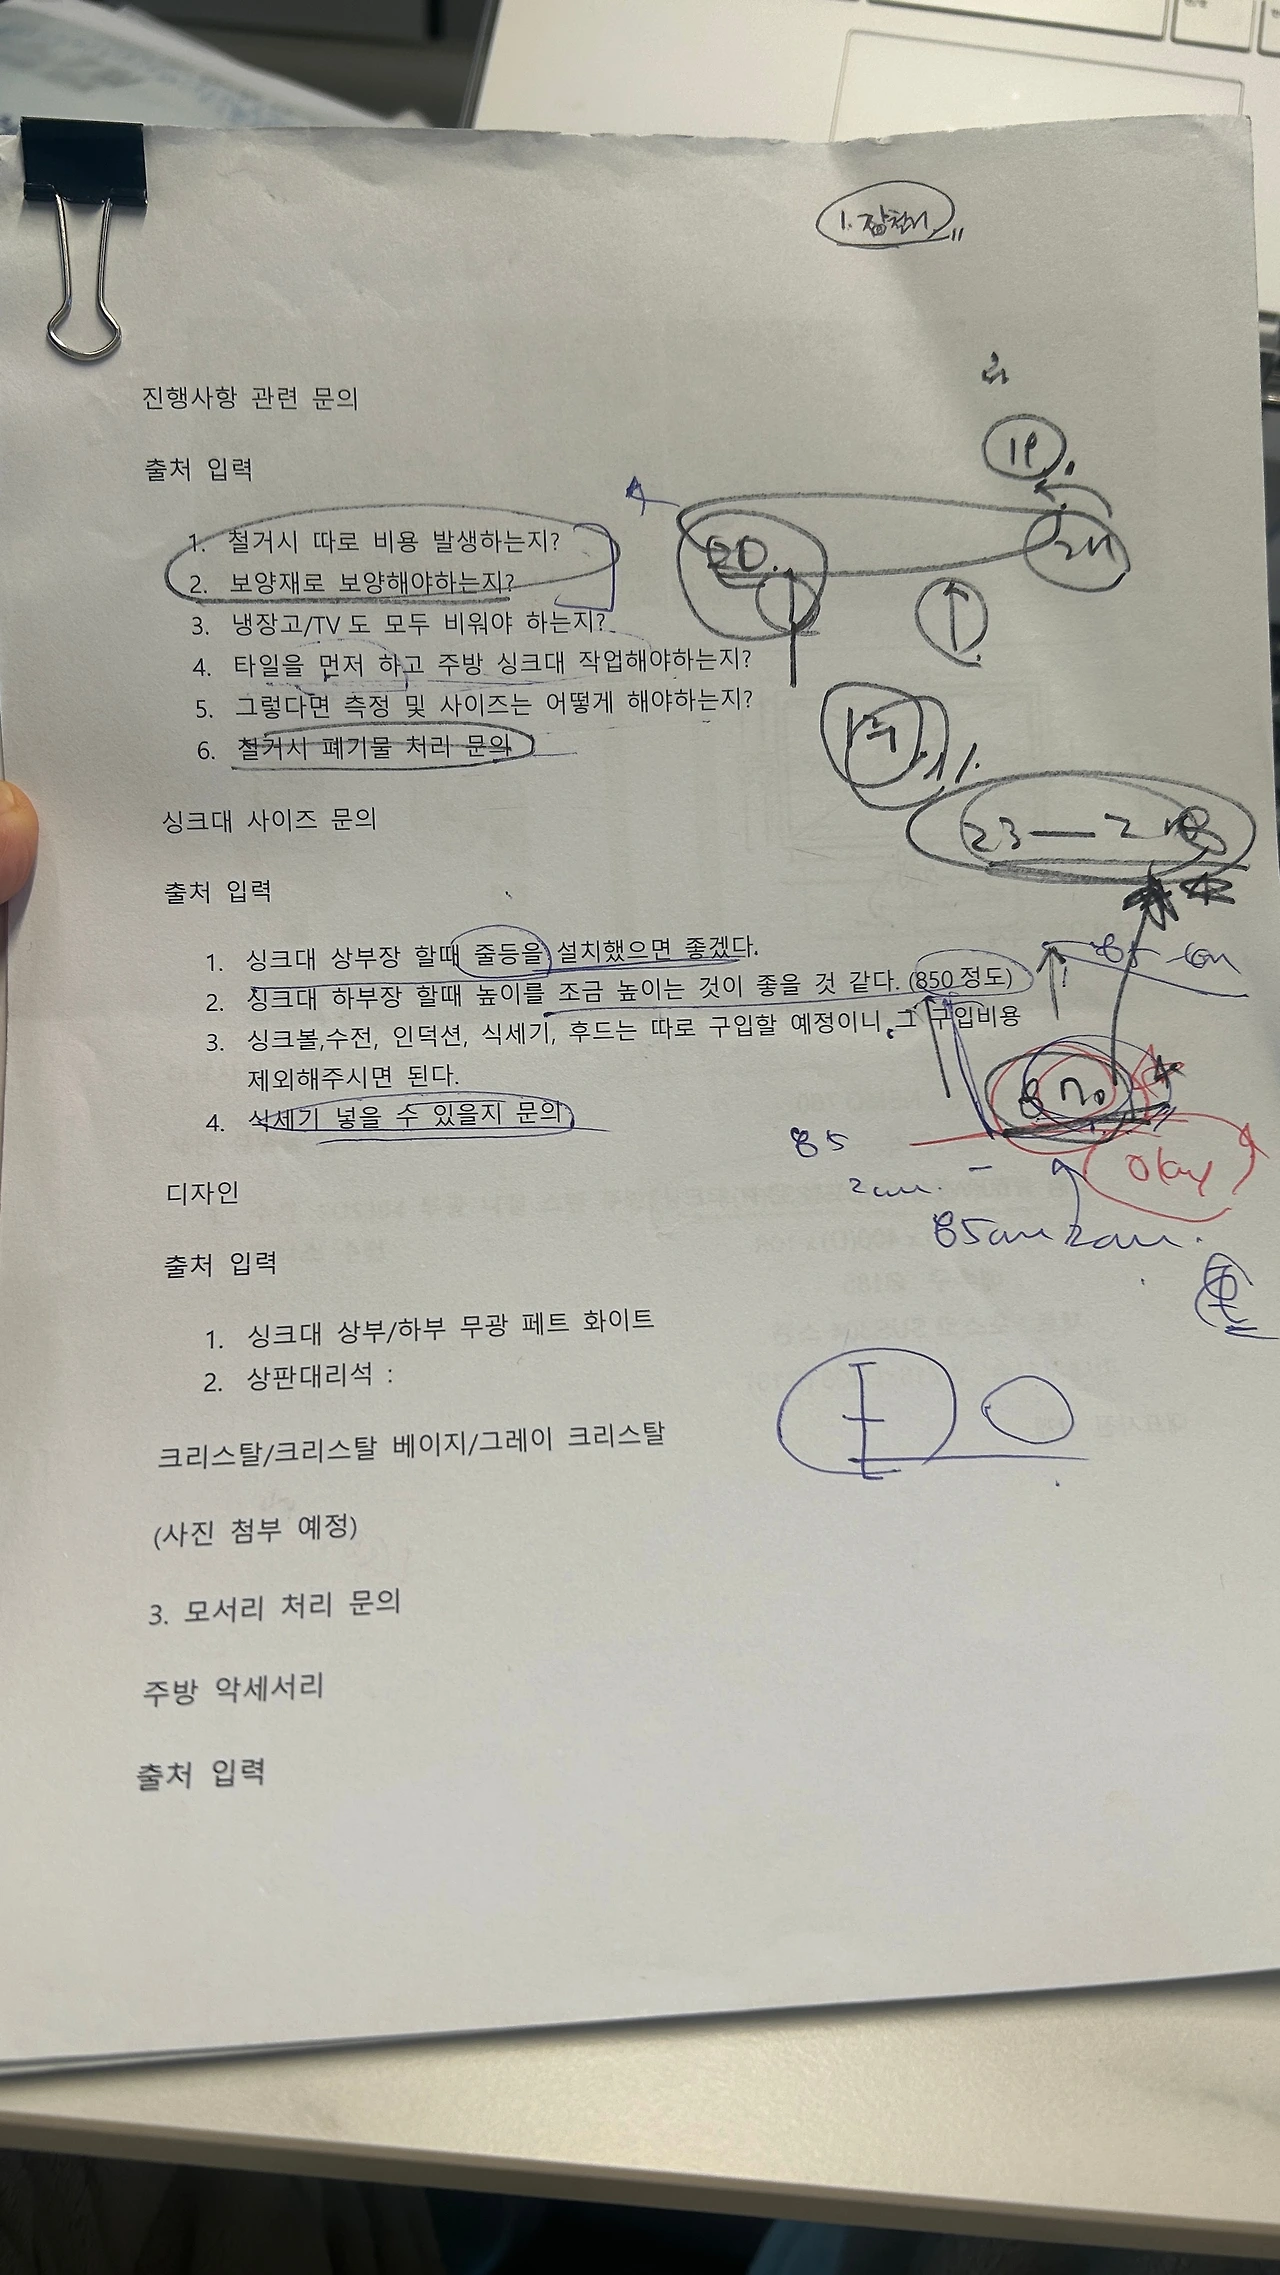 1. 잡철거
진행사항 관련 문의
출처 입력
19.
1. 철거시 따로 비용 발생하는지?
20.
24
2. 보양재로 보양해야하는지?
3. 냉장고/TV도 모두 비워야 하는지?
4. 타일을 먼저 하고 주방 싱크대 작업해야하는지?
5. 그렇다면 측정 및 사이즈는 어떻게 해야하는지?
6. 철거시 폐기물 처리 문의
1주
싱크대 사이즈 문의
출처 입력
1. 싱크대 상부장 할때 줄등을 설치했으면 좋겠다.
2. 싱크대 하부장 할때 높이를 조금 높이는 것이 좋을 것 같다. (850 정도)
3. 싱크볼,수전, 인덕션, 식세기, 후드는 따로 구입할 예정이니, 그 구입비용
제외해주시면 된다.
870
4. 식세기 넣을 수 있을지 문의
85
okay
2cm.
디자인
85cm 2cm.
출처 입력
1. 싱크대 상부/하부 무광 페트 화이트
2. 상판대리석 :
크리스탈/크리스탈 베이지/그레이 크리스탈
(사진 첨부 예정)
3. 모서리 처리 문의
주방 악세서리
출처 입력